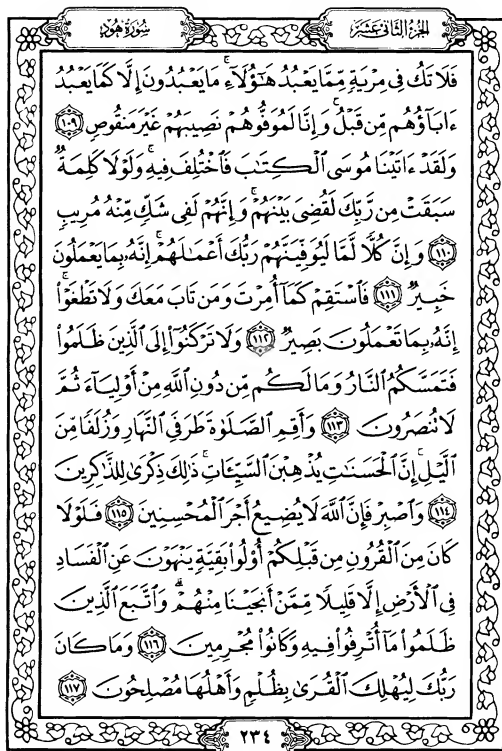 سُورَةُ هُودٍ
الجُزْءُ الثَّانِي عَشَرَ
فَلَا تَكُ فِى مِرْيَةٍ مِّمَّا يَعْبُدُ هَٰٓؤُلَآءِ ۚ مَا يَعْبُدُونَ إِلَّا كَمَا يَعْبُدُ
ءَابَآؤُهُم مِّن قَبْلُ ۚ وَإِنَّا لَمُوَفُّوهُمْ نَصِيبَهُمْ غَيْرَ مَنقُوصٍ ١٠٩
وَلَقَدْ ءَاتَيْنَا مُوسَى ٱلْكِتَٰبَ فَٱخْتُلِفَ فِيهِ ۚ وَلَوْلَا كَلِمَةٌ
سَبَقَتْ مِن رَّبِّكَ لَقُضِىَ بَيْنَهُمْ ۚ وَإِنَّهُمْ لَفِى شَكٍّ مِّنْهُ مُرِيبٍ
١١٠ وَإِنَّ كُلًّا لَّمَّا لَيُوَفِّيَنَّهُمْ رَبُّكَ أَعْمَٰلَهُمْ ۚ إِنَّهُۥ بِمَا يَعْمَلُونَ
خَبِيرٌ ١١١ فَٱسْتَقِمْ كَمَآ أُمِرْتَ وَمَن تَابَ مَعَكَ وَلَا تَطْغَوْا۟ ۚ
إِنَّهُۥ بِمَا تَعْمَلُونَ بَصِيرٌ ١١٢ وَلَا تَرْكَنُوٓا۟ إِلَى ٱلَّذِينَ ظَلَمُوا۟
فَتَمَسَّكُمُ ٱلنَّارُ وَمَا لَكُم مِّن دُونِ ٱللَّهِ مِنْ أَوْلِيَآءَ ثُمَّ
لَا تُنصَرُونَ ١١٣ وَأَقِمِ ٱلصَّلَوٰةَ طَرَفَىِ ٱلنَّهَارِ وَزُلَفًا مِّنَ
ٱلَّيْلِ ۚ إِنَّ ٱلْحَسَنَٰتِ يُذْهِبْنَ ٱلسَّيِّـَٔاتِ ۚ ذَٰلِكَ ذِكْرَىٰ لِلذَّٰكِرِينَ
١١٤ وَٱصْبِرْ فَإِنَّ ٱللَّهَ لَا يُضِيعُ أَجْرَ ٱلْمُحْسِنِينَ ١١٥ فَلَوْلَا
كَانَ مِنَ ٱلْقُرُونِ مِن قَبْلِكُمْ أُو۟لُوا۟ بَقِيَّةٍ يَنْهَوْنَ عَنِ ٱلْفَسَادِ
فِى ٱلْأَرْضِ إِلَّا قَلِيلًا مِّمَّنْ أَنجَيْنَا مِنْهُمْ ۗ وَٱتَّبَعَ ٱلَّذِينَ
ظَلَمُوا۟ مَآ أُتْرِفُوا۟ فِيهِ وَكَانُوا۟ مُجْرِمِينَ ١١٦ وَمَا كَانَ
رَبُّكَ لِيُهْلِكَ ٱلْقُرَىٰ بِظُلْمٍ وَأَهْلُهَا مُصْلِحُونَ ١١٧
٢٣٤